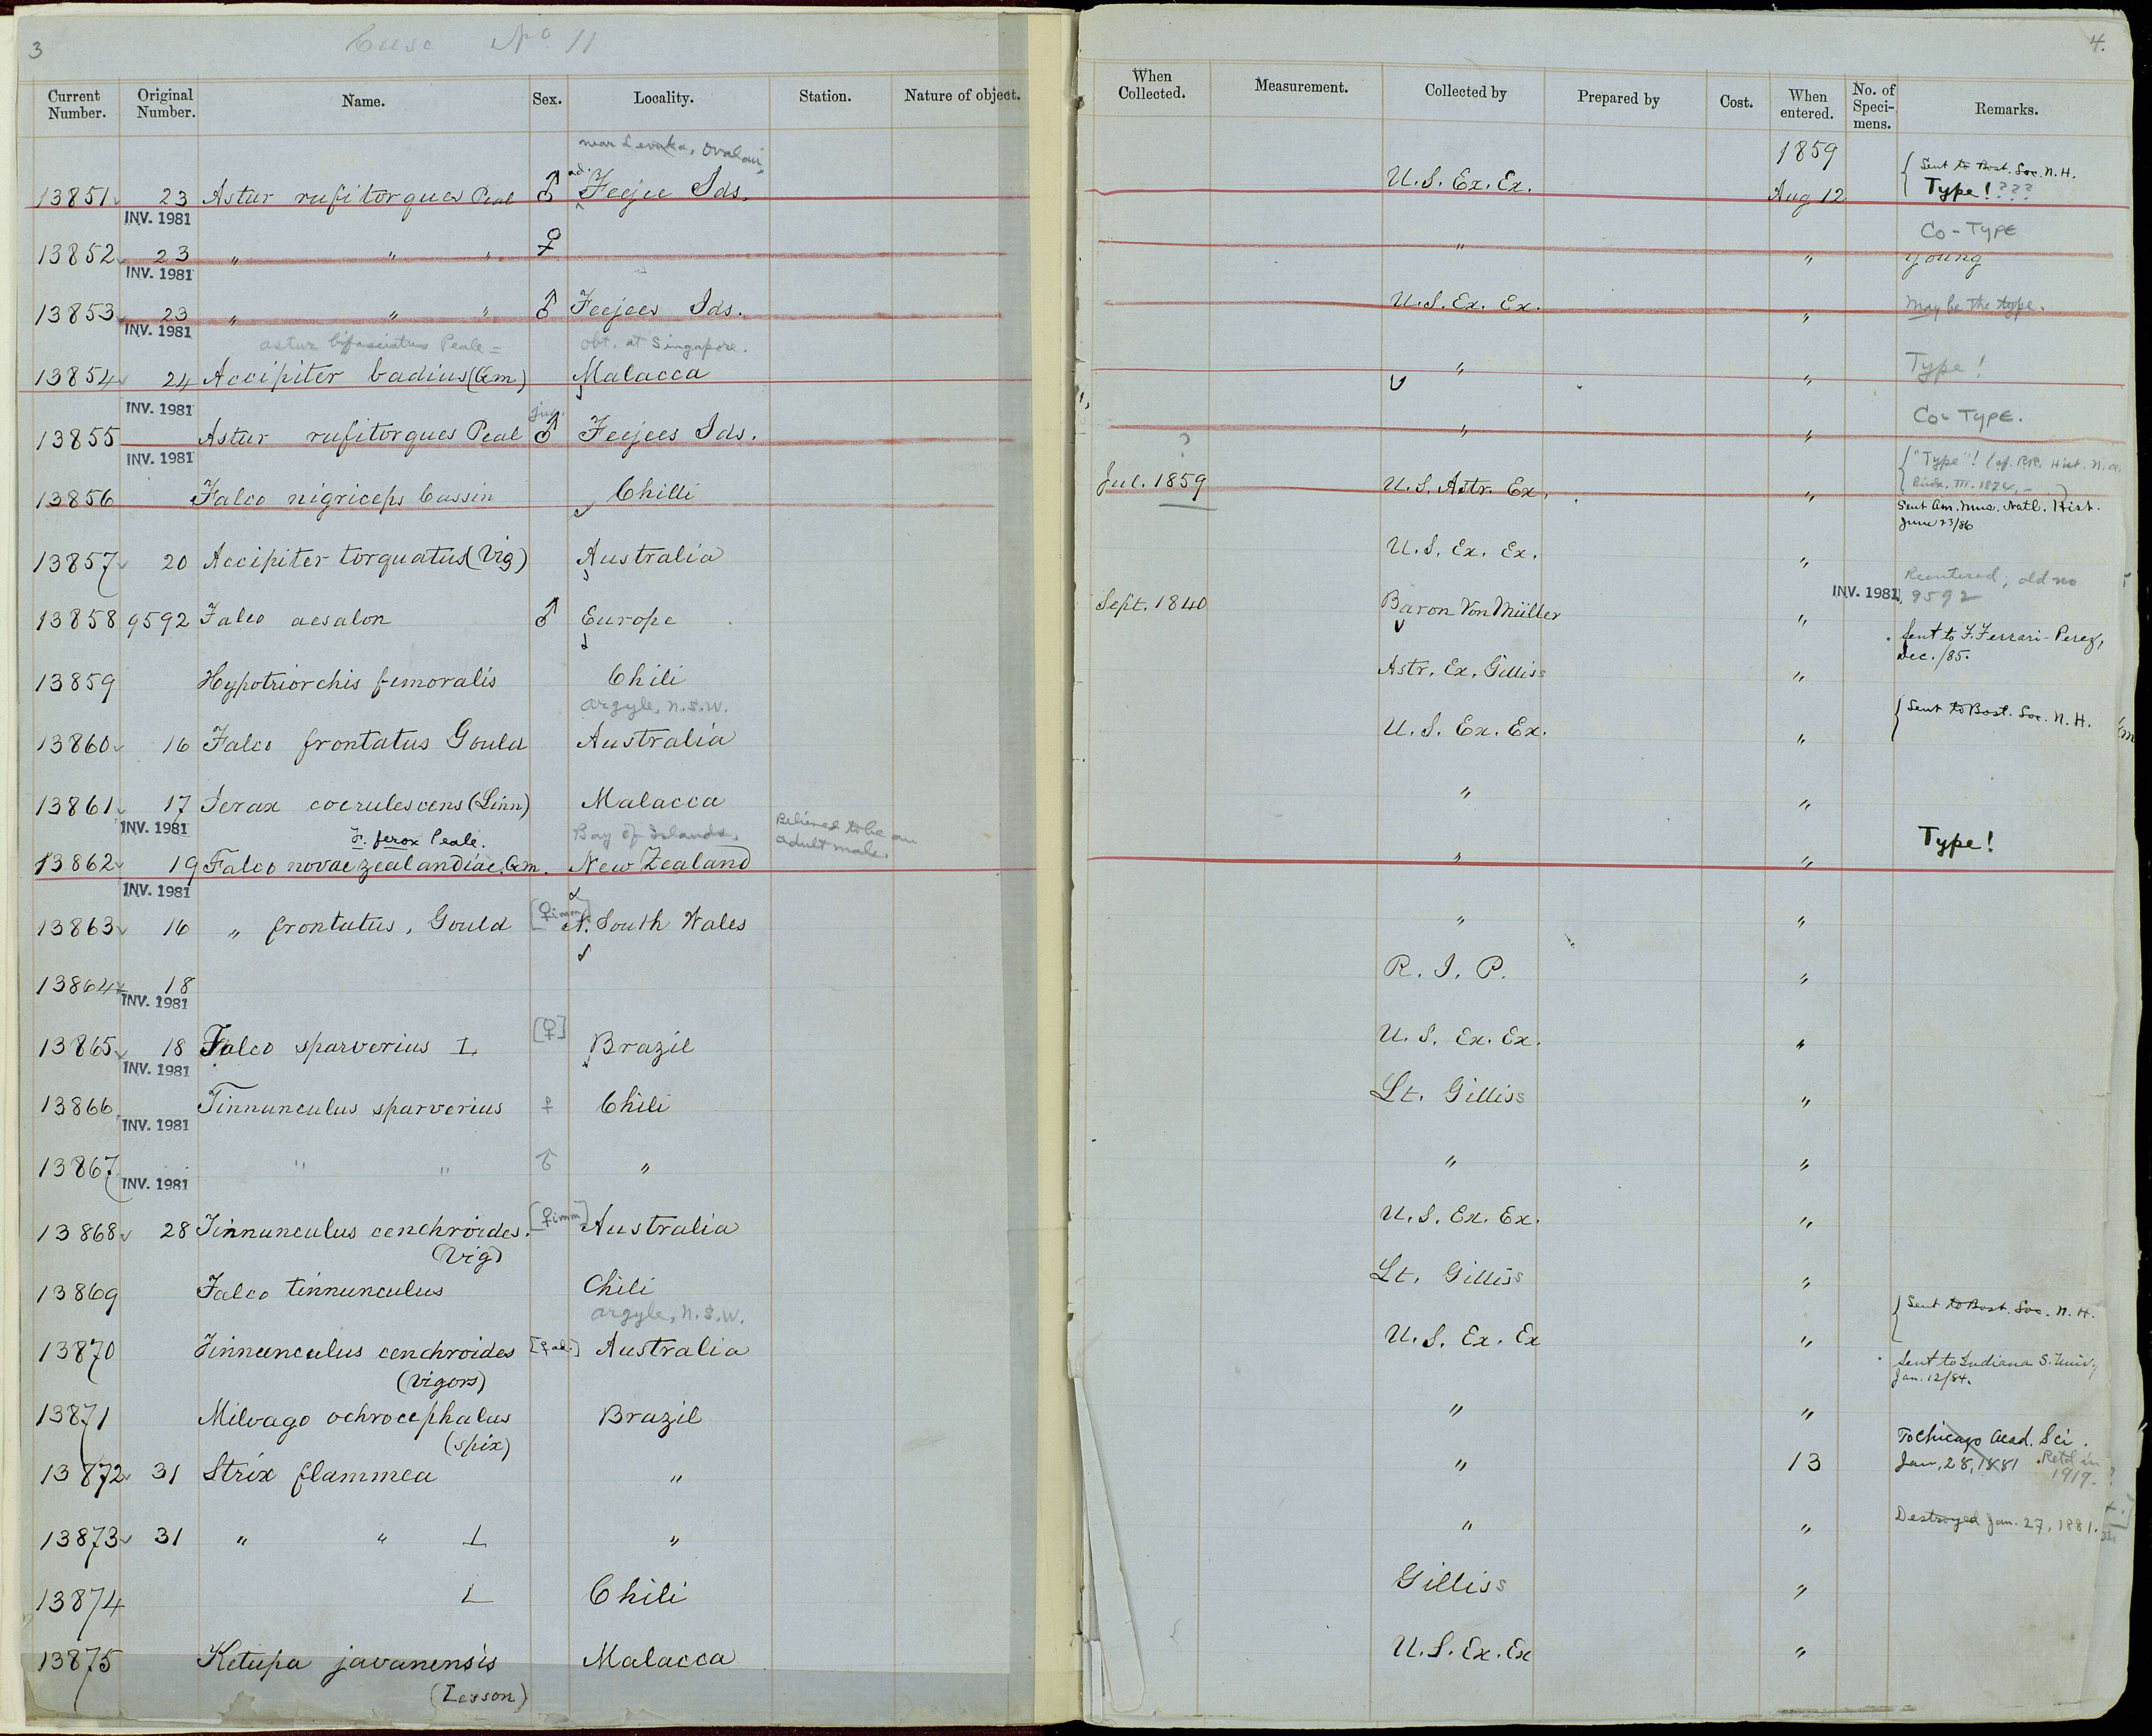 3
Case No 11
4.
Current Number. Original Number. Name. Sex. Locality. Station. Nature of object. When Collected. Measurement. Collected by Prepared by Cost. When entered. No. of Speci- mens. Remarks.
near Levuka, Ovalau, 1859 { Sent to Bost. Soc. N. H.
13851 23 Astur rufitorques Peal ♂ ad. Feejee Ids. U.S. Ex. Ex. Aug 12 Type! ???
INV. 1981
Co-Type
13852 23 " " " ♀ " " Young
INV. 1981
13853 23 " " " ♂ Feejees Ids. U.S. Ex. Ex. " May be the type.
INV. 1981
astur bifasciatus Peale = obt. at Singapore.
13854 24 Accipiter badius (Gm) Malacca " " Type!
INV. 1981
juv.
13855 Astur rufitorques Peal ♂ Feejees Ids. " " Co-Type.
INV. 1981
? { "Type"! (cf. B.B.R. Hist. N. A.
13856 Falco nigriceps Cassin Chilli Jul. 1859 U.S. Astr. Ex. " Birds. III. 1874, - )
Sent Am. Mus. Natl. Hist.
June 23/86
13857 20 Accipiter torquatus (Vig) Australia U.S. Ex. Ex. "
Reentered; old no
13858 9592 Falco aesalon ♂ Europe Sept. 1840 Baron Von Müller " INV. 1981 9592
Sent to F. Ferrari-Perez,
Dec. /85.
13859 Hypotriorchis femoralis Chili Astr. Ex. Gilliss "
Argyle, N.S.W. { Sent to Bost. Soc. N. H.
13860 16 Falco frontatus Gould Australia U.S. Ex. Ex. "
13861 17 Ierax coerulescens (Linn) Malacca " "
INV. 1981
F. ferox Peale. Bay of Islands. Believed to be an adult male.
13862 19 Falco novaezealandiae. Gm. New Zealand " " Type!
INV. 1981
13863 16 " frontatus, Gould [♀ imm.] N. South Wales " "
13864 18 R. I. P. "
INV. 1981
13865 18 Falco sparverius L [♀] Brazil U.S. Ex. Ex. "
INV. 1981
13866 Tinnunculus sparverius ♀ Chili Lt. Gilliss "
INV. 1981
13867 " " ♂ " " "
INV. 1981
13868 28 Tinnunculus cenchroides. [♀ imm] Australia U.S. Ex. Ex. "
(Vig)
13869 Falco tinnunculus Chili Lt. Gilliss "
Argyle, N.S.W. { Sent to Bost. Soc. N. H.
13870 Tinnunculus cenchroides [♀ ad.] Australia U.S. Ex. Ex "
(Vigors)
Sent to Indiana S. Univ.,
Jan. 12/84.
13871 Milvago ochrocephalus Brazil " "
(Spix)
To Chicago Acad. Sci.
13872 31 Strix flammea " " 13 Jan, 28, 1881 Retd in 1919.
13873 31 " " L " " " Destroyed Jan. 27, 1881.
13874 L Chili Gilliss "
13875 Ketupa javanensis Malacca U.S. Ex. Ex "
(Lesson)